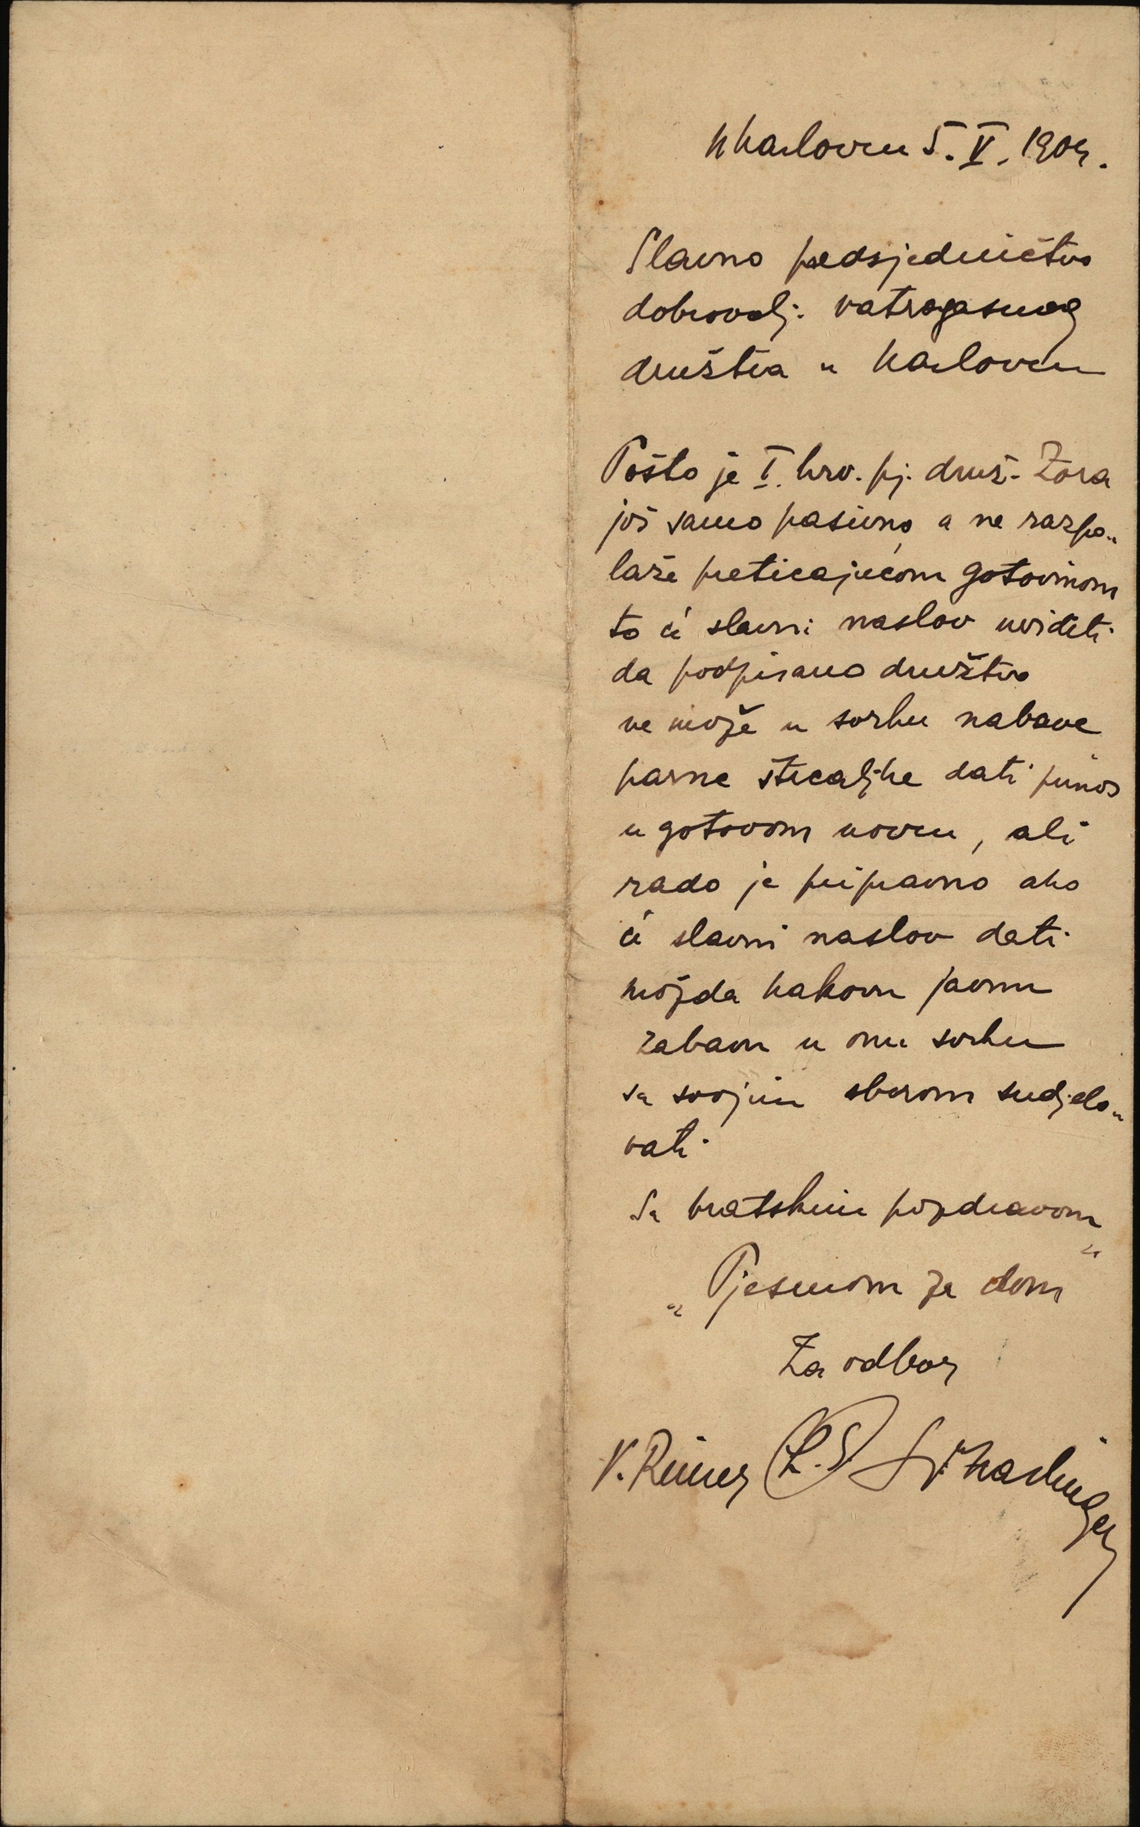 U Karlovcu 5. V. 1904.
Slavno predsjedničtvo
dobrovolj. vatrogasnog
družtva u Karlovcu
Pošto je I. hrv. pj. druž. Zora
još samo pasivno a ne razpo„
laže preticajućom gotovinom
to će slavni naslov uvidjeti
da podpisano družtvo
ne može u svrhu nabave
parne štrcaljke dati prinos
u gotovom novcu, ali
rado je pripravno ako
će slavni naslov dati
možda kakovu javnu
zabavu u onu svrhu
sa svojim sborom sudjelo„
vati.
Sa bratskim pozdravom
„Pjesmom za dom“
Za odbor
V. Reiner